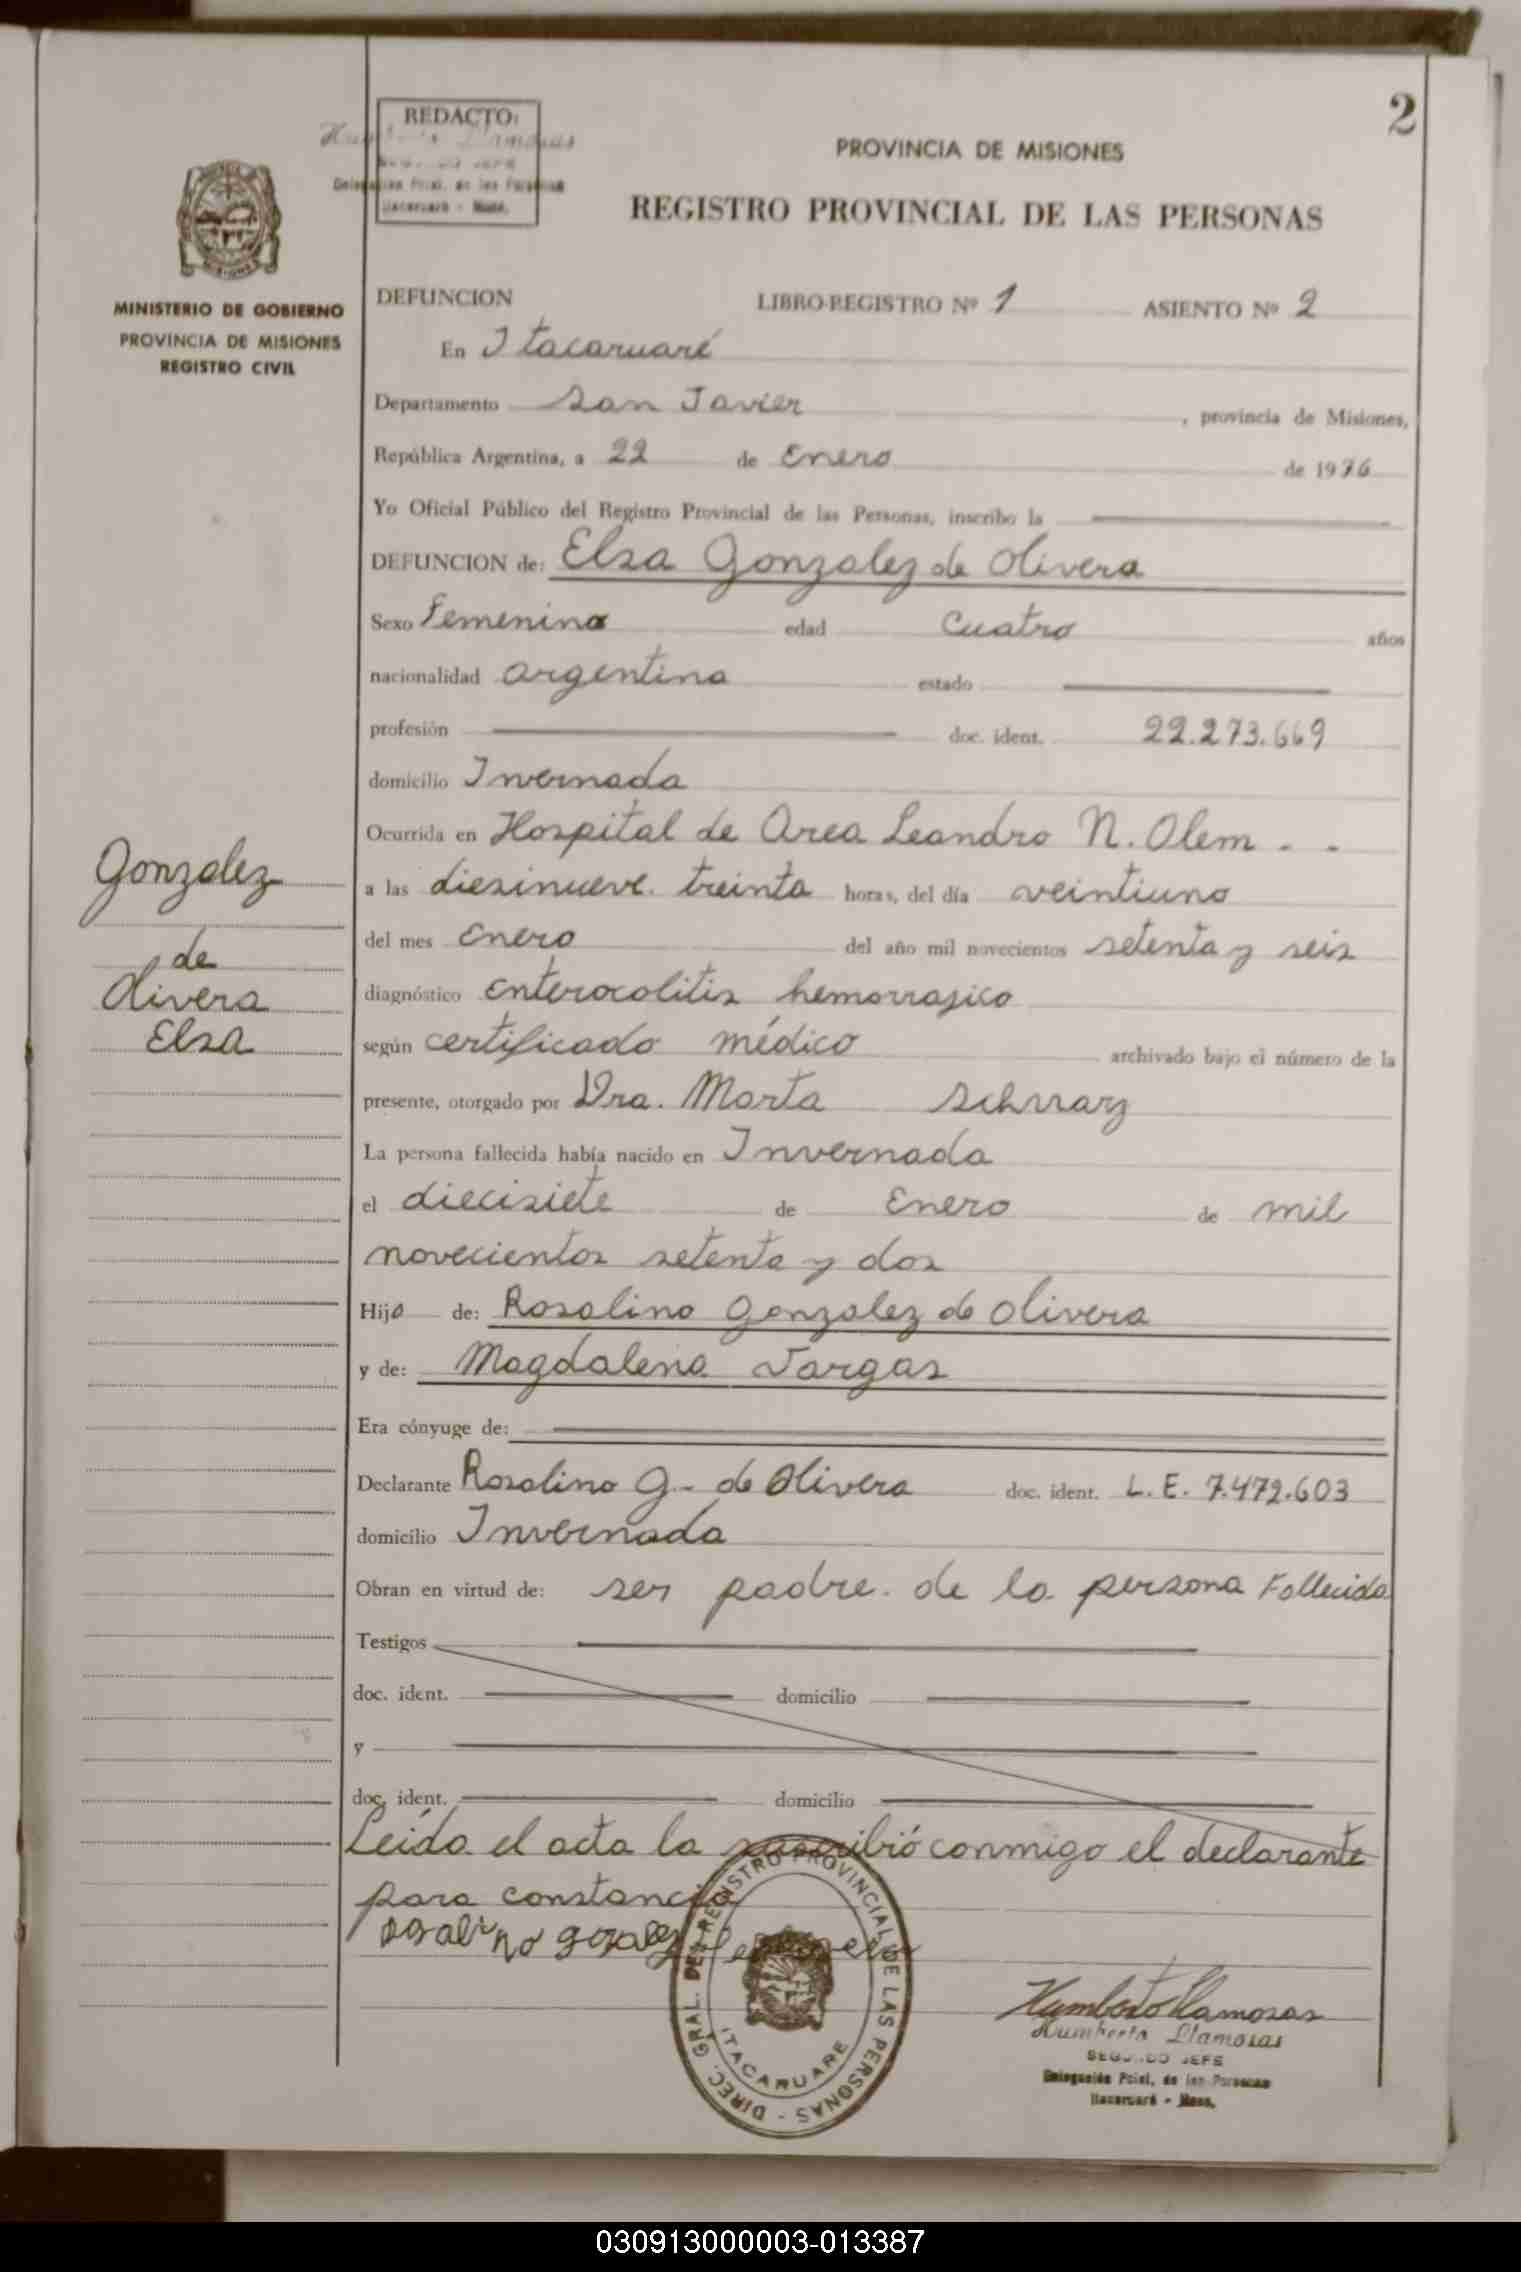 2
REDACTO:
Humberto Llamosas
SEGUNDO JEFE
Delegación Pcial. de las Personas
Itacaruaré - Mnes.
PROVINCIA DE MISIONES
REGISTRO PROVINCIAL DE LAS PERSONAS
MISIONES
MINISTERIO DE GOBIERNO
PROVINCIA DE MISIONES
REGISTRO CIVIL
DEFUNCION LIBRO-REGISTRO Nº 1 ASIENTO Nº 2
En Itacaruaré
Departamento San Javier, provincia de Misiones,
República Argentina, a 22 de Enero de 1976
Yo Oficial Público del Registro Provincial de las Personas, inscribo la
DEFUNCION de: Elsa Gonzalez de Olivera
Sexo Femenino edad Cuatro años
nacionalidad argentina estado
profesión doc. ident. 22.273.669
domicilio Invernada
Ocurrida en Hospital de Area Leandro N. Olem - -
a las diesinueve treinta horas, del día veintiuno
del mes Enero del año mil novecientos setenta y seis
diagnóstico enterocolitis hemorrasico
según certificado médico archivado bajo el número de la
presente, otorgado por Dra. Marta Schwarz
La persona fallecida había nacido en Invernada
el diecisiete de Enero de mil
novecientos setenta y dos
Hija de: Rosalino Gonzalez de Olivera
y de: Magdalena Vargas
Era cónyuge de:
Declarante Rosalino G.- de Olivera doc. ident. L. E. 7.472.603
domicilio Invernada
Obran en virtud de: ser padre de la persona Fallecida
Testigos
doc. ident. domicilio
y
doc. ident. domicilio
Leída el acta la suscribió conmigo el declarante
para constancia
Gonzalez
de
Olivera
Elsa
DIREC. GRAL. DEL REGISTRO PROVINCIAL DE LAS PERSONAS -
ITACARUARE
Humberto Llamosas
Humberto Llamosas
SEGUNDO JEFE
Delegación Pcial. de las Personas
Itacaruaré - Mnes.
030913000003-013387